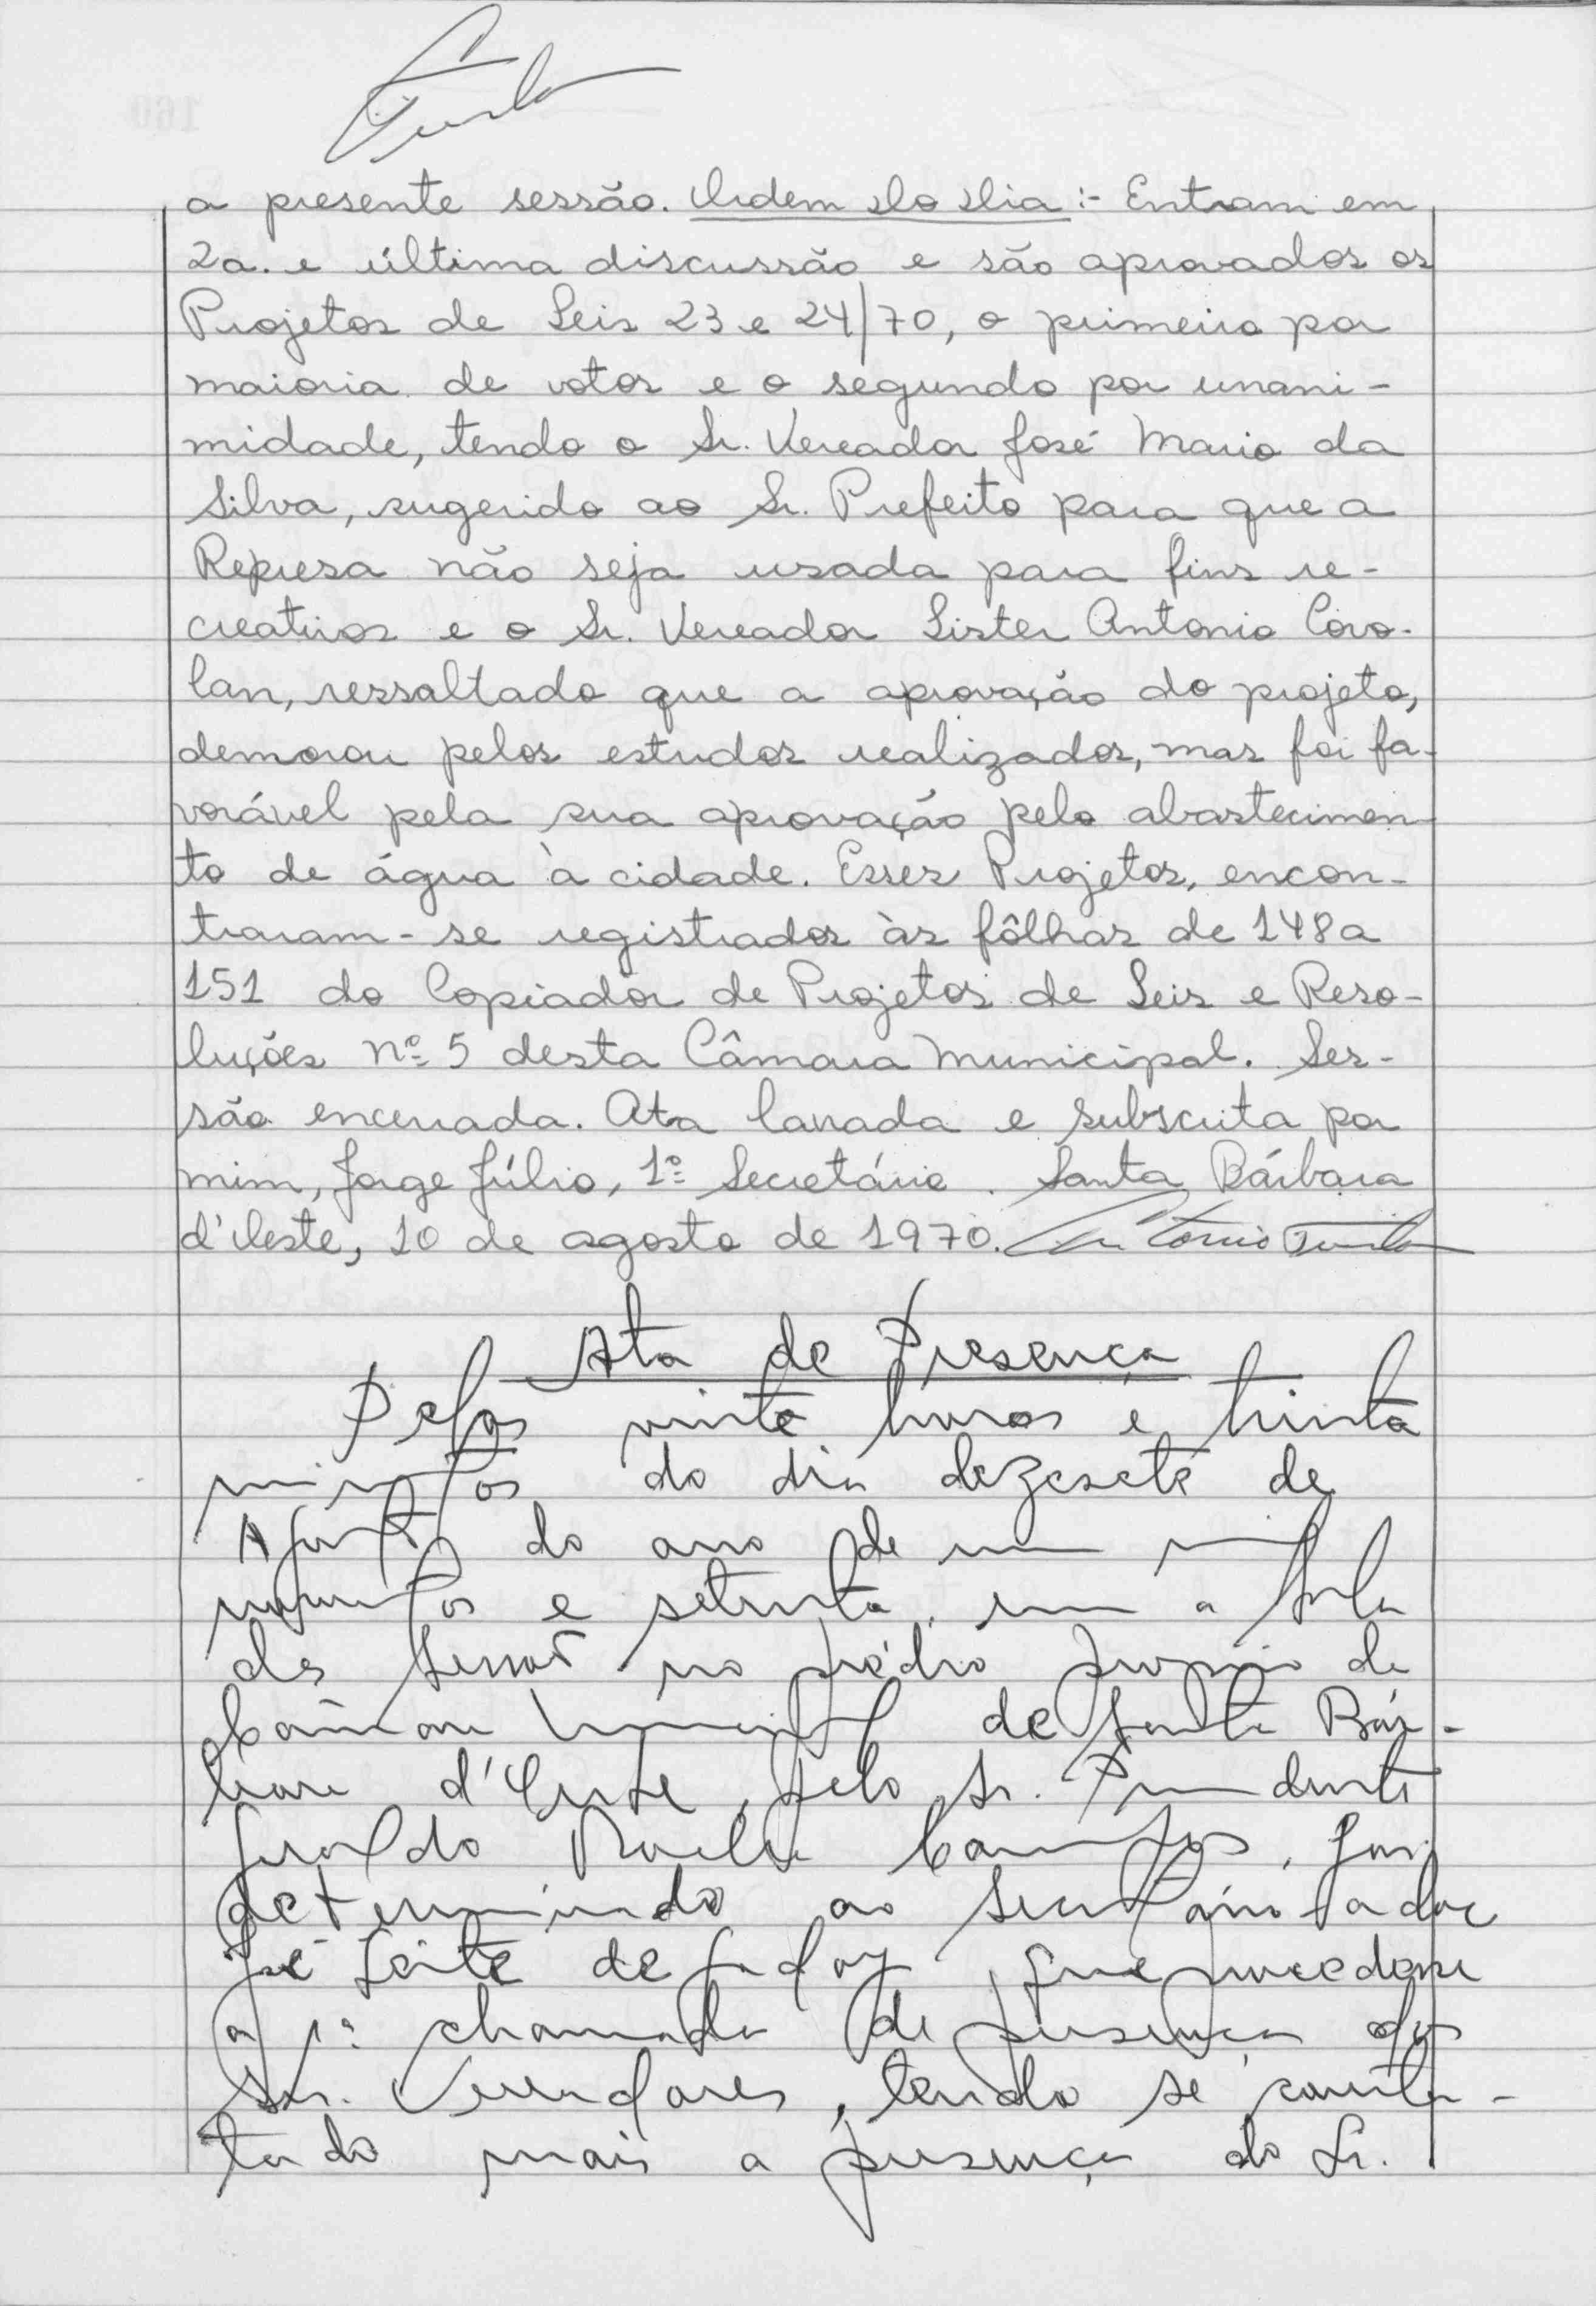 a presente sessão. Ordem do Dia :- Entram em
2a. e última discussão e são aprovados os
Projetos de Leis 23 e 24/70, o primeiro por
maioria de votos e o segundo por unani-
midade, tendo o Sr. Vereador José Maria da
Silva, sugerido ao Sr. Prefeito para que a
Represa não seja usada para fins re-
creativos e o Sr. Vereador Lister Antonio Covo-
lan, ressaltado que a aprovação do projeto,
demorou pelos estudos realizados, mas foi fa-
vorável pela sua aprovação pelo abastecimen
to de água à cidade. Esses Projetos, encon-
traram-se registrados às fôlhas de 148 a
151 do Copiador de Projetos de Leis e Reso-
luções nº 5 desta Câmara Municipal. Ses-
são encerrada. Ata lavrada e subscrita por
mim, Jorge Júlio, 1º Secretário. Santa Bárbara
d'Oeste, 10 de agosto de 1970. Antonio
Ata de Presença
Pelas vinte horas e trinta
minutos do dia dezesete de
Agosto do ano de um mil
novecentos e setenta, em a Sala
das Sessões no prédio proprio da
Câmara Municipal de Santa Bár-
bara d'Oeste, pelo Sr. Presidente
Geraldo Rocha Campos, foi
determinado ao Secretário
José Leite de Godoy, que procedesse
a 1ª chamada de presença dos
Srs. Vereadores, tendo se consta-
tado mais a presença do Sr.